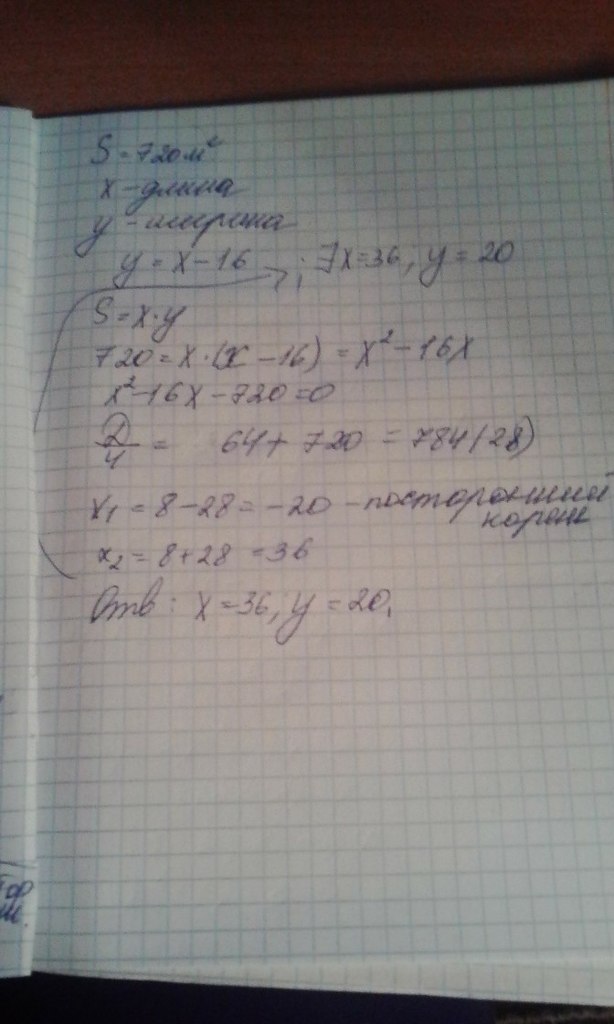 S = 720 м²
x - длина
y - ширина
y = x - 16 ; ⇒ x = 36, y = 20
S = x · y
720 = x · (x - 16) = x² - 16x
x² - 16x - 720 = 0
D/4 = 64 + 720 = 784 (28)
x₁ = 8 - 28 = -20 - посторонний
корень
x₂ = 8 + 28 = 36
Отв : x = 36, y = 20.